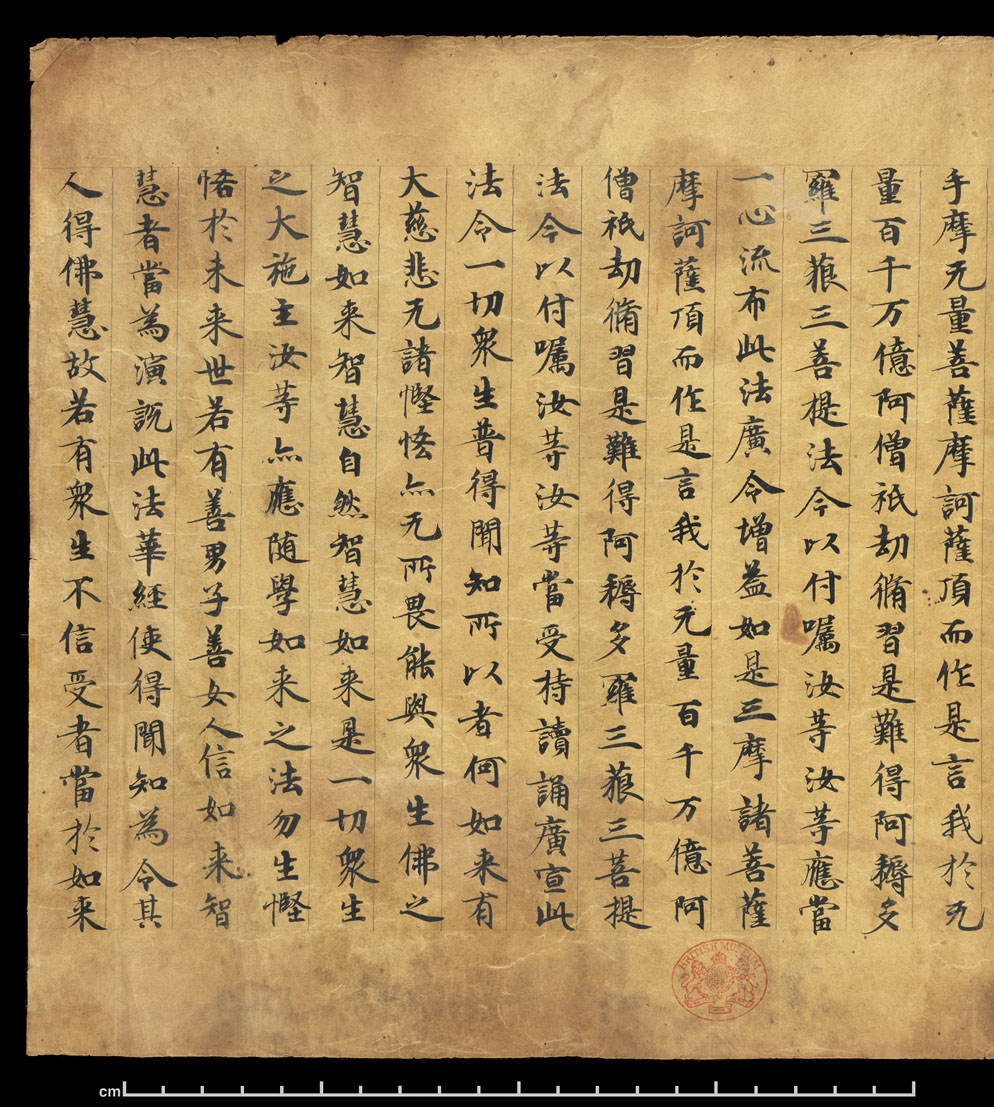 手摩无量菩薩摩訶薩頂而作是言我於无
量百千万億阿僧祇劫脩習是難得阿耨多
羅三藐三菩提法今以付囑汝等汝等應當
一心流布此法廣令增益如是三摩諸菩薩
摩訶薩頂而作是言我於无量百千万億阿
僧祇劫脩習是難得阿耨多羅三藐三菩提
法今以付囑汝等汝等當受持讀誦廣宣此
法令一切衆生普得聞知所以者何如来有
大慈悲无諸慳悋亦无所畏能與衆生佛之
智慧如来智慧自然智慧如来是一切衆生
之大施主汝等亦應随學如来之法勿生慳
悋於未来世若有善男子善女人信如来智
慧者當為演說此法華經使得聞知為令其
人得佛慧故若有衆生不信受者當於如来
BRITISH MUSEUM
cm